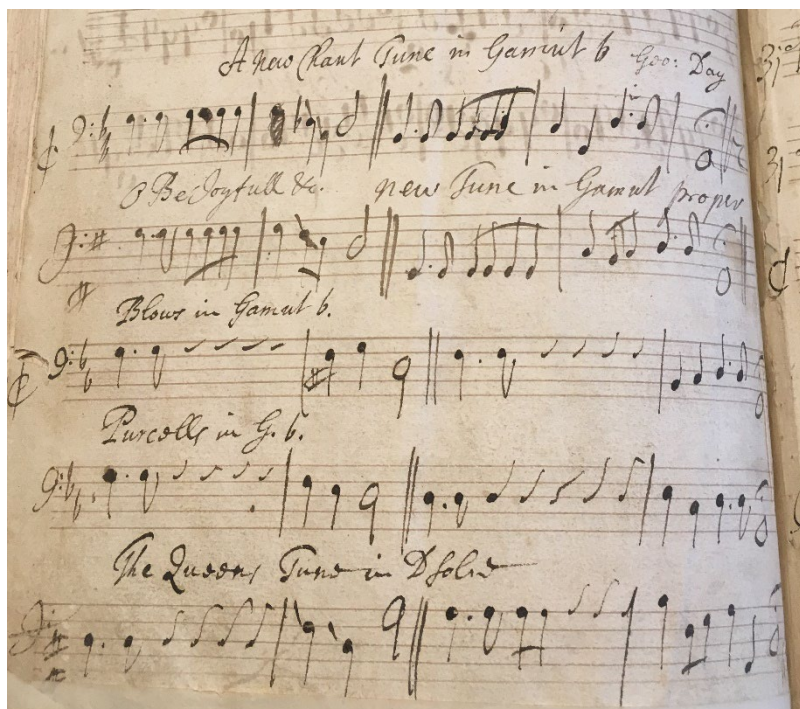 A new Chant Tune in Gamut b Geo: Day
O Be Joyfull &c. new Tune in Gamut proper
Blows in Gamut b.
Purcells in G. b.
The Queens Tune in D solre